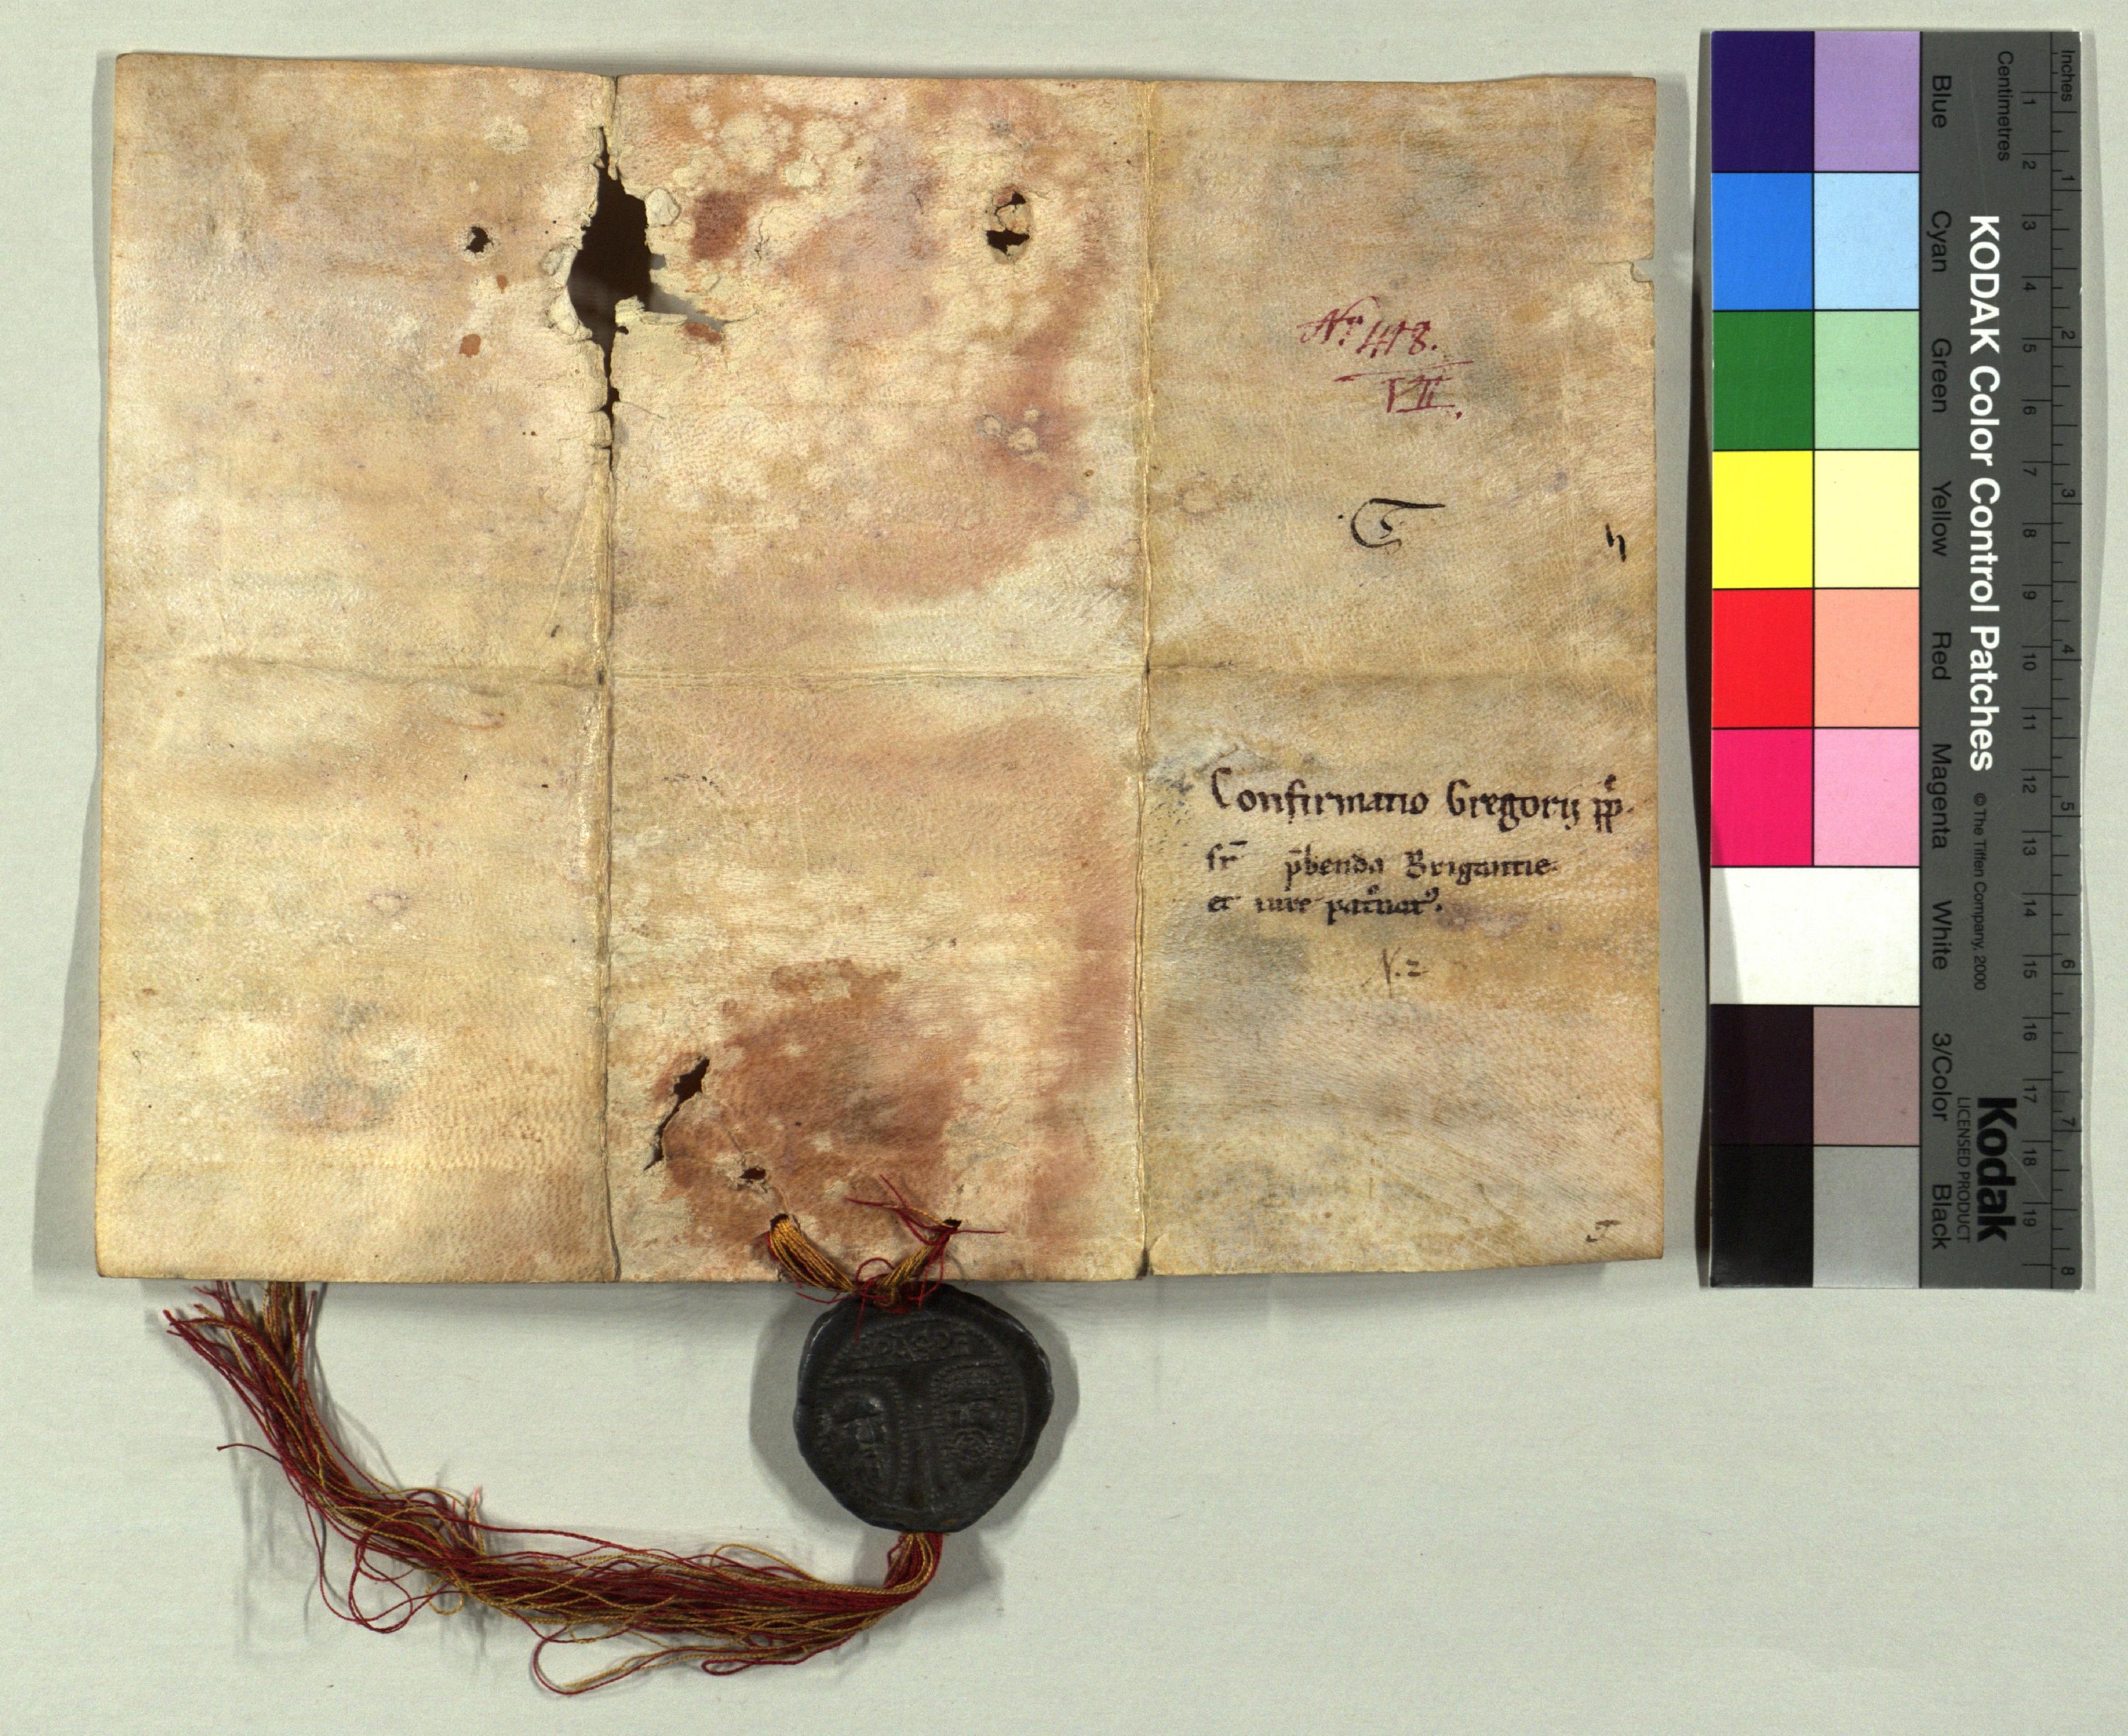 Nr. 418.
VII.
Confirmatio Gregorij pp.
sr̄ p̄benda Brigantie
et iure pat͛nat9.
V.=
Inches
Centimetres
1 2 3 4 5 6 7 8 9 10 11 12 13 14 15 16 17 18 19
1 2 3 4 5 6 7 8
KODAK Color Control Patches
© The Tiffen Company, 2000
Kodak
LICENSED PRODUCT
Blue
Cyan
Green
Yellow
Red
Magenta
White
3/Color
Black